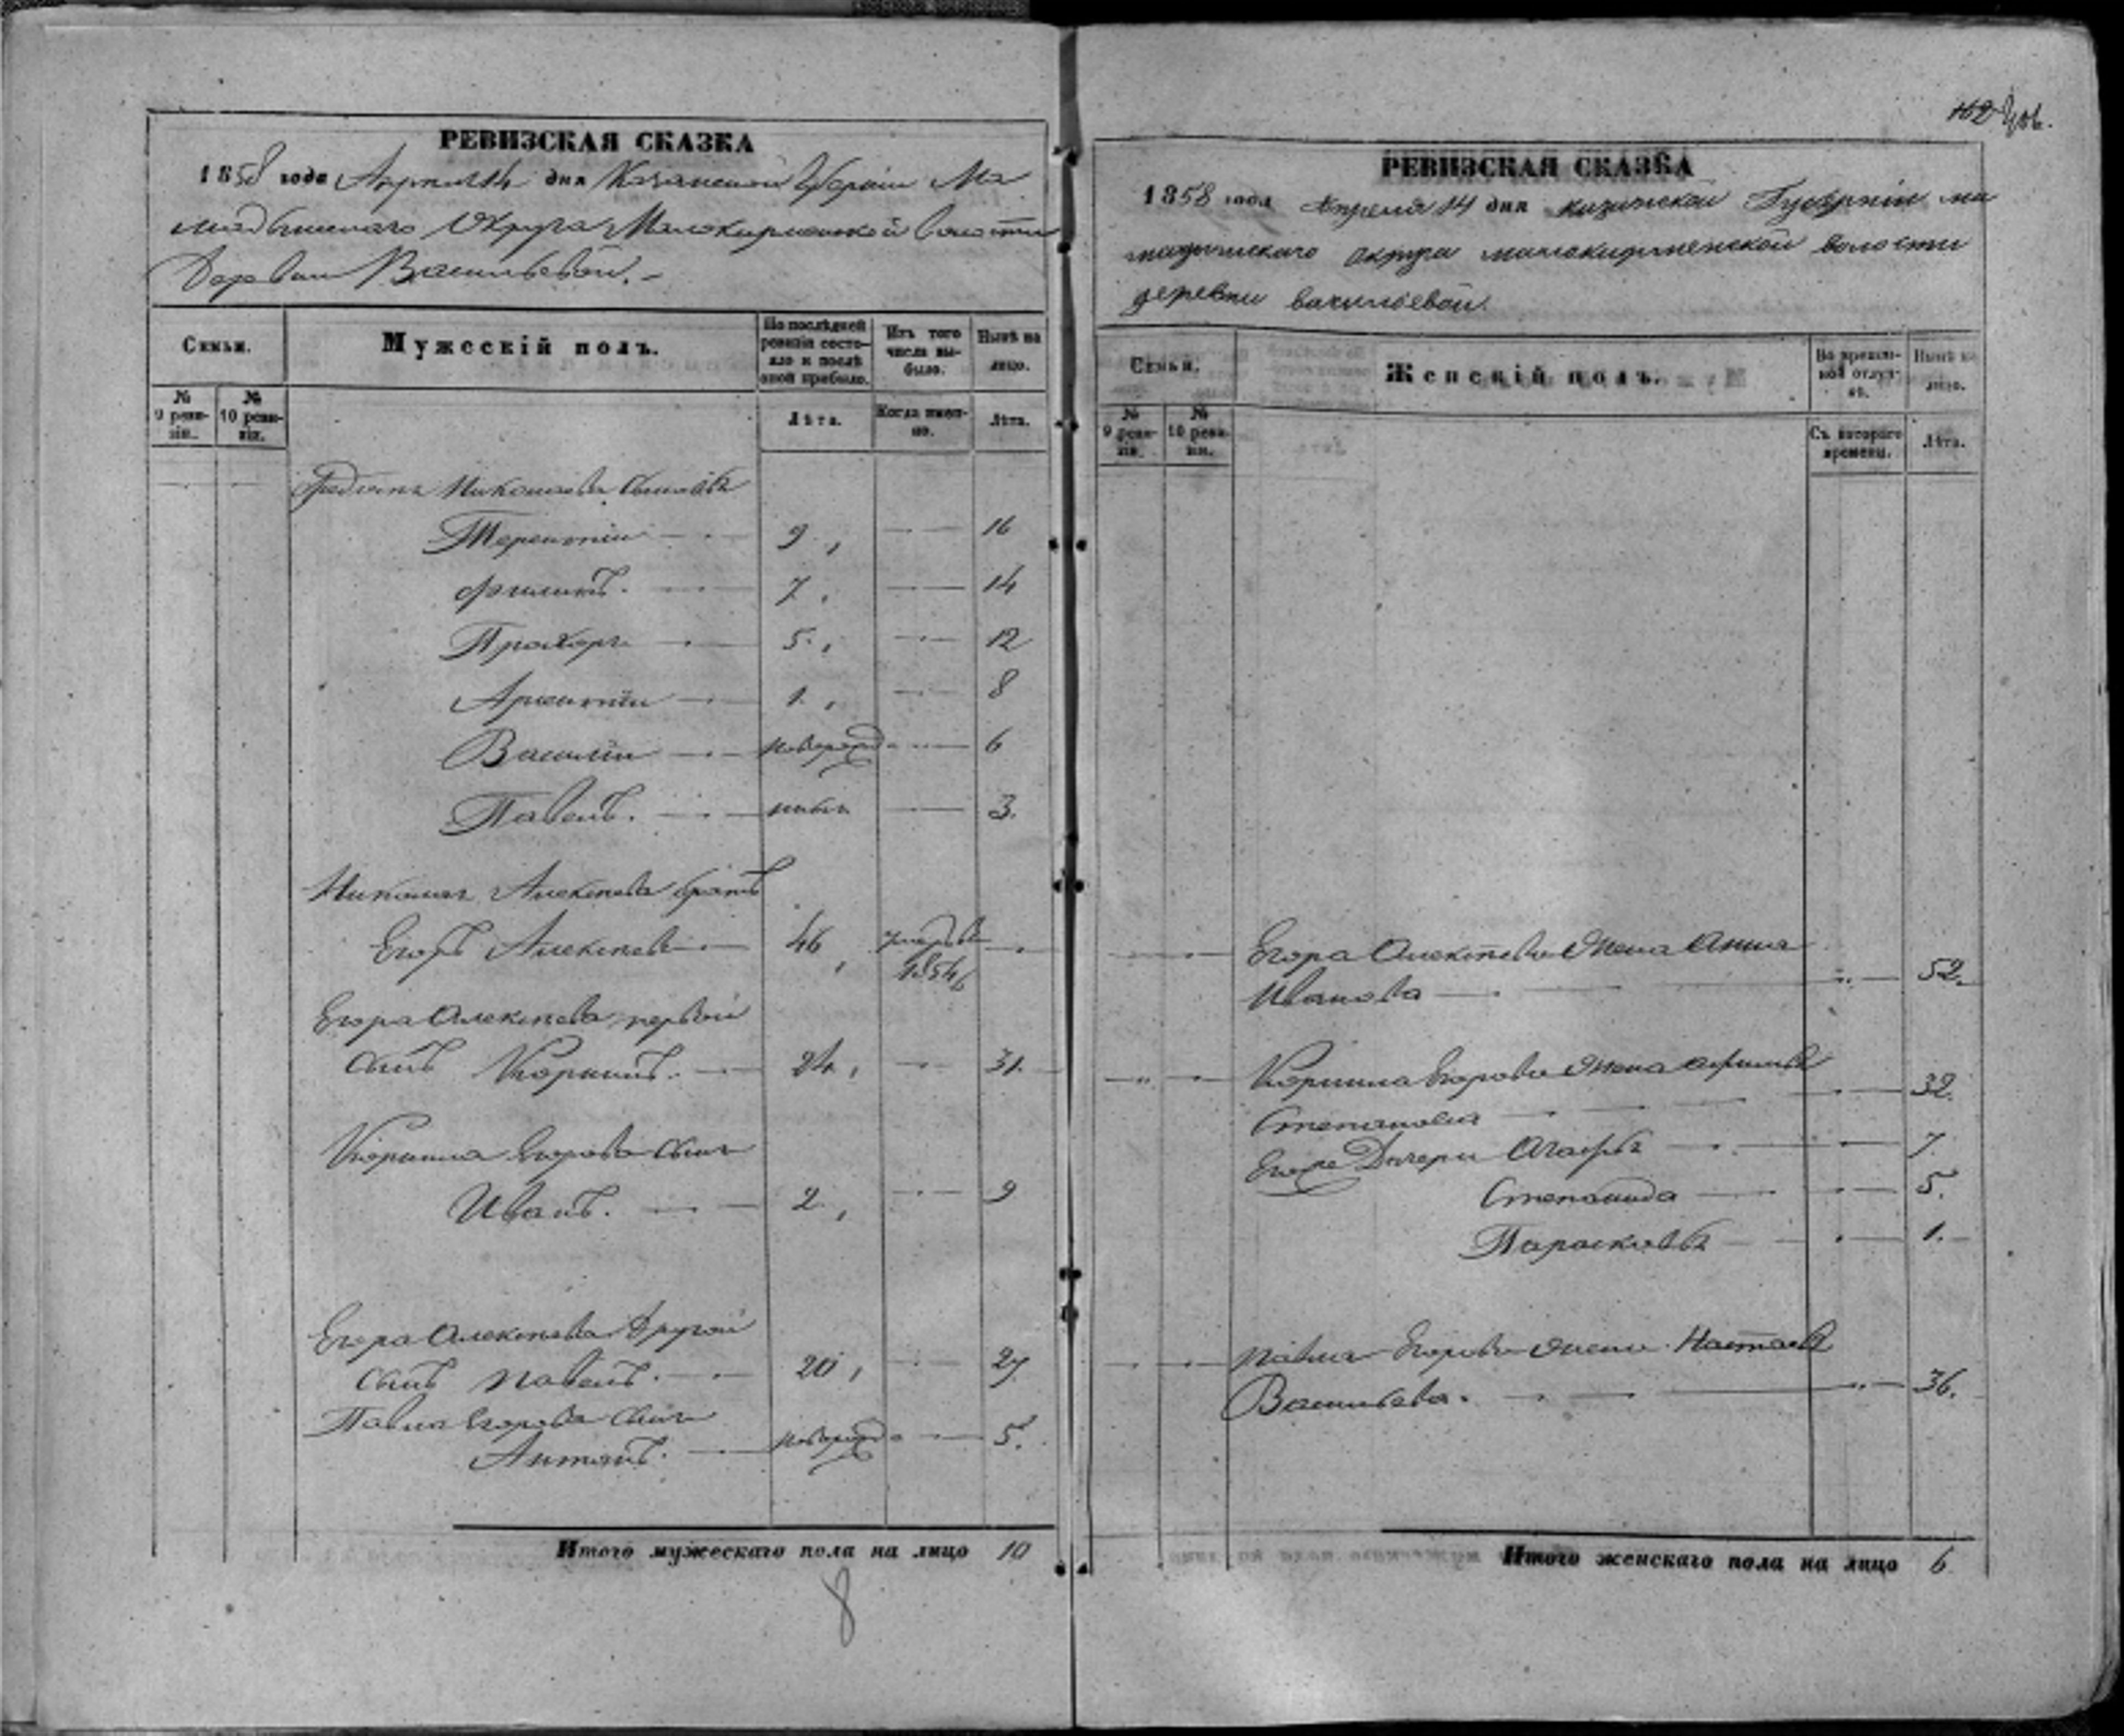 РЕВИЗСКАЯ СКАЗКА
1858 года Апреля 14 дня Казанской Губернiи Ма
мадышскаго Округа Малокирменской волости
Деревни Васильевой.
Семьи.
Мужескiй полъ.
По послѣдней ревизiи состояло и послѣ оной прибыло.
Изъ того числа выбыло.
Нынѣ на лицо.
№ 9 ревизiи.
№ 10 ревизiи.
Лѣта.
Когда именно.
Лѣта.
Николаева сыновья
Терентiй 9 16
Филипъ. 7 14
Прохоръ 5 12
Арсентiй 1 8
Василiй новорож 6
Павелъ. 3.
Николая Алексѣева братъ
Егоръ Алексѣевъ 46 умеръ 1854
Егора Алексѣева первой
сынъ Корнилъ. 24 31.
Корнила Егорова сынъ
Иванъ. 2 9
Егора Алексѣева другой
сынъ Павелъ. 20 27
Павла Егорова сынъ
Антонъ. новорож 5.
Итого мужескаго пола на лицо 10
8
102 об.
РЕВИЗСКАЯ СКАЗКА
1858 года Апреля 14 дня казанской Губернiи ма
мадышскаго округа малокирменской волости
деревни васильевой.
Семьи.
Женскiй полъ.
Во временной отлучкѣ.
Нынѣ на лицо.
№ 9 ревизiи.
№ 10 ревизiи.
Съ котораго времени.
Лѣта.
Егора Алексѣева жена Анна
Иванова 52.
Корнила Егорова жена
Степанова 32.
Его дочери Агафья 7.
Степанида 5.
Парасковья 1.
Павла Егорова жена Настасья
Васильева. 36.
Итого женскаго пола на лицо 6